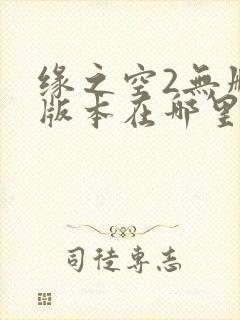 缘之空2無
版本在哪里
司徒専志